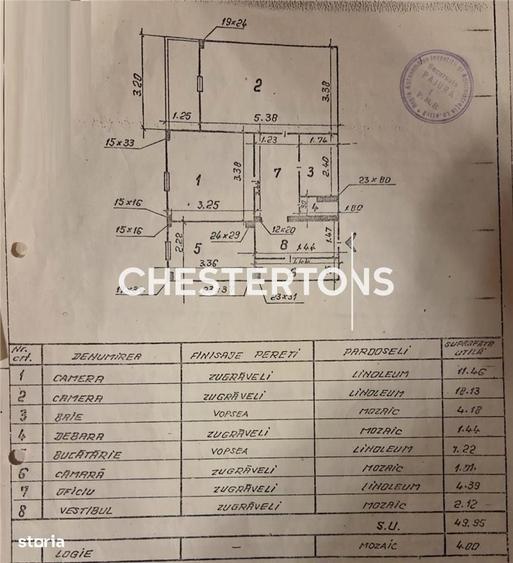 19×24
3.20
2
3.38
1.25
5.38
15×33
1.23
1.74
1
3.38
7
3
2.40
23×80
4
1.80
15×16
3.25
15×16
24×29
12×20
2.22
5
8
1.44
1.47
3.36
CHESTERTONS
23×31
PAJURA
Nr. crt.
DENUMIREA
FINISAJE PEREȚI
PARDOSELI
SUPRAFAȚA UTILĂ
1 CAMERA ZUGRĂVELI LINOLEUM 11.46
2 CAMERA ZUGRĂVELI LINOLEUM 18.13
3 BAIE VOPSEA MOZAIC 4.18
4 DEBARA ZUGRĂVELI MOZAIC 1.44
BUCĂTĂRIE VOPSEA LINOLEUM 7.22
6 CĂMARĂ ZUGRĂVELI MOZAIC 1.01
7 OFICIU ZUGRĂVELI LINOLEUM 4.39
8 VESTIBUL ZUGRĂVELI MOZAIC 2.12
S.U. 49.95
LOGIE — MOZAIC 4.00
storia